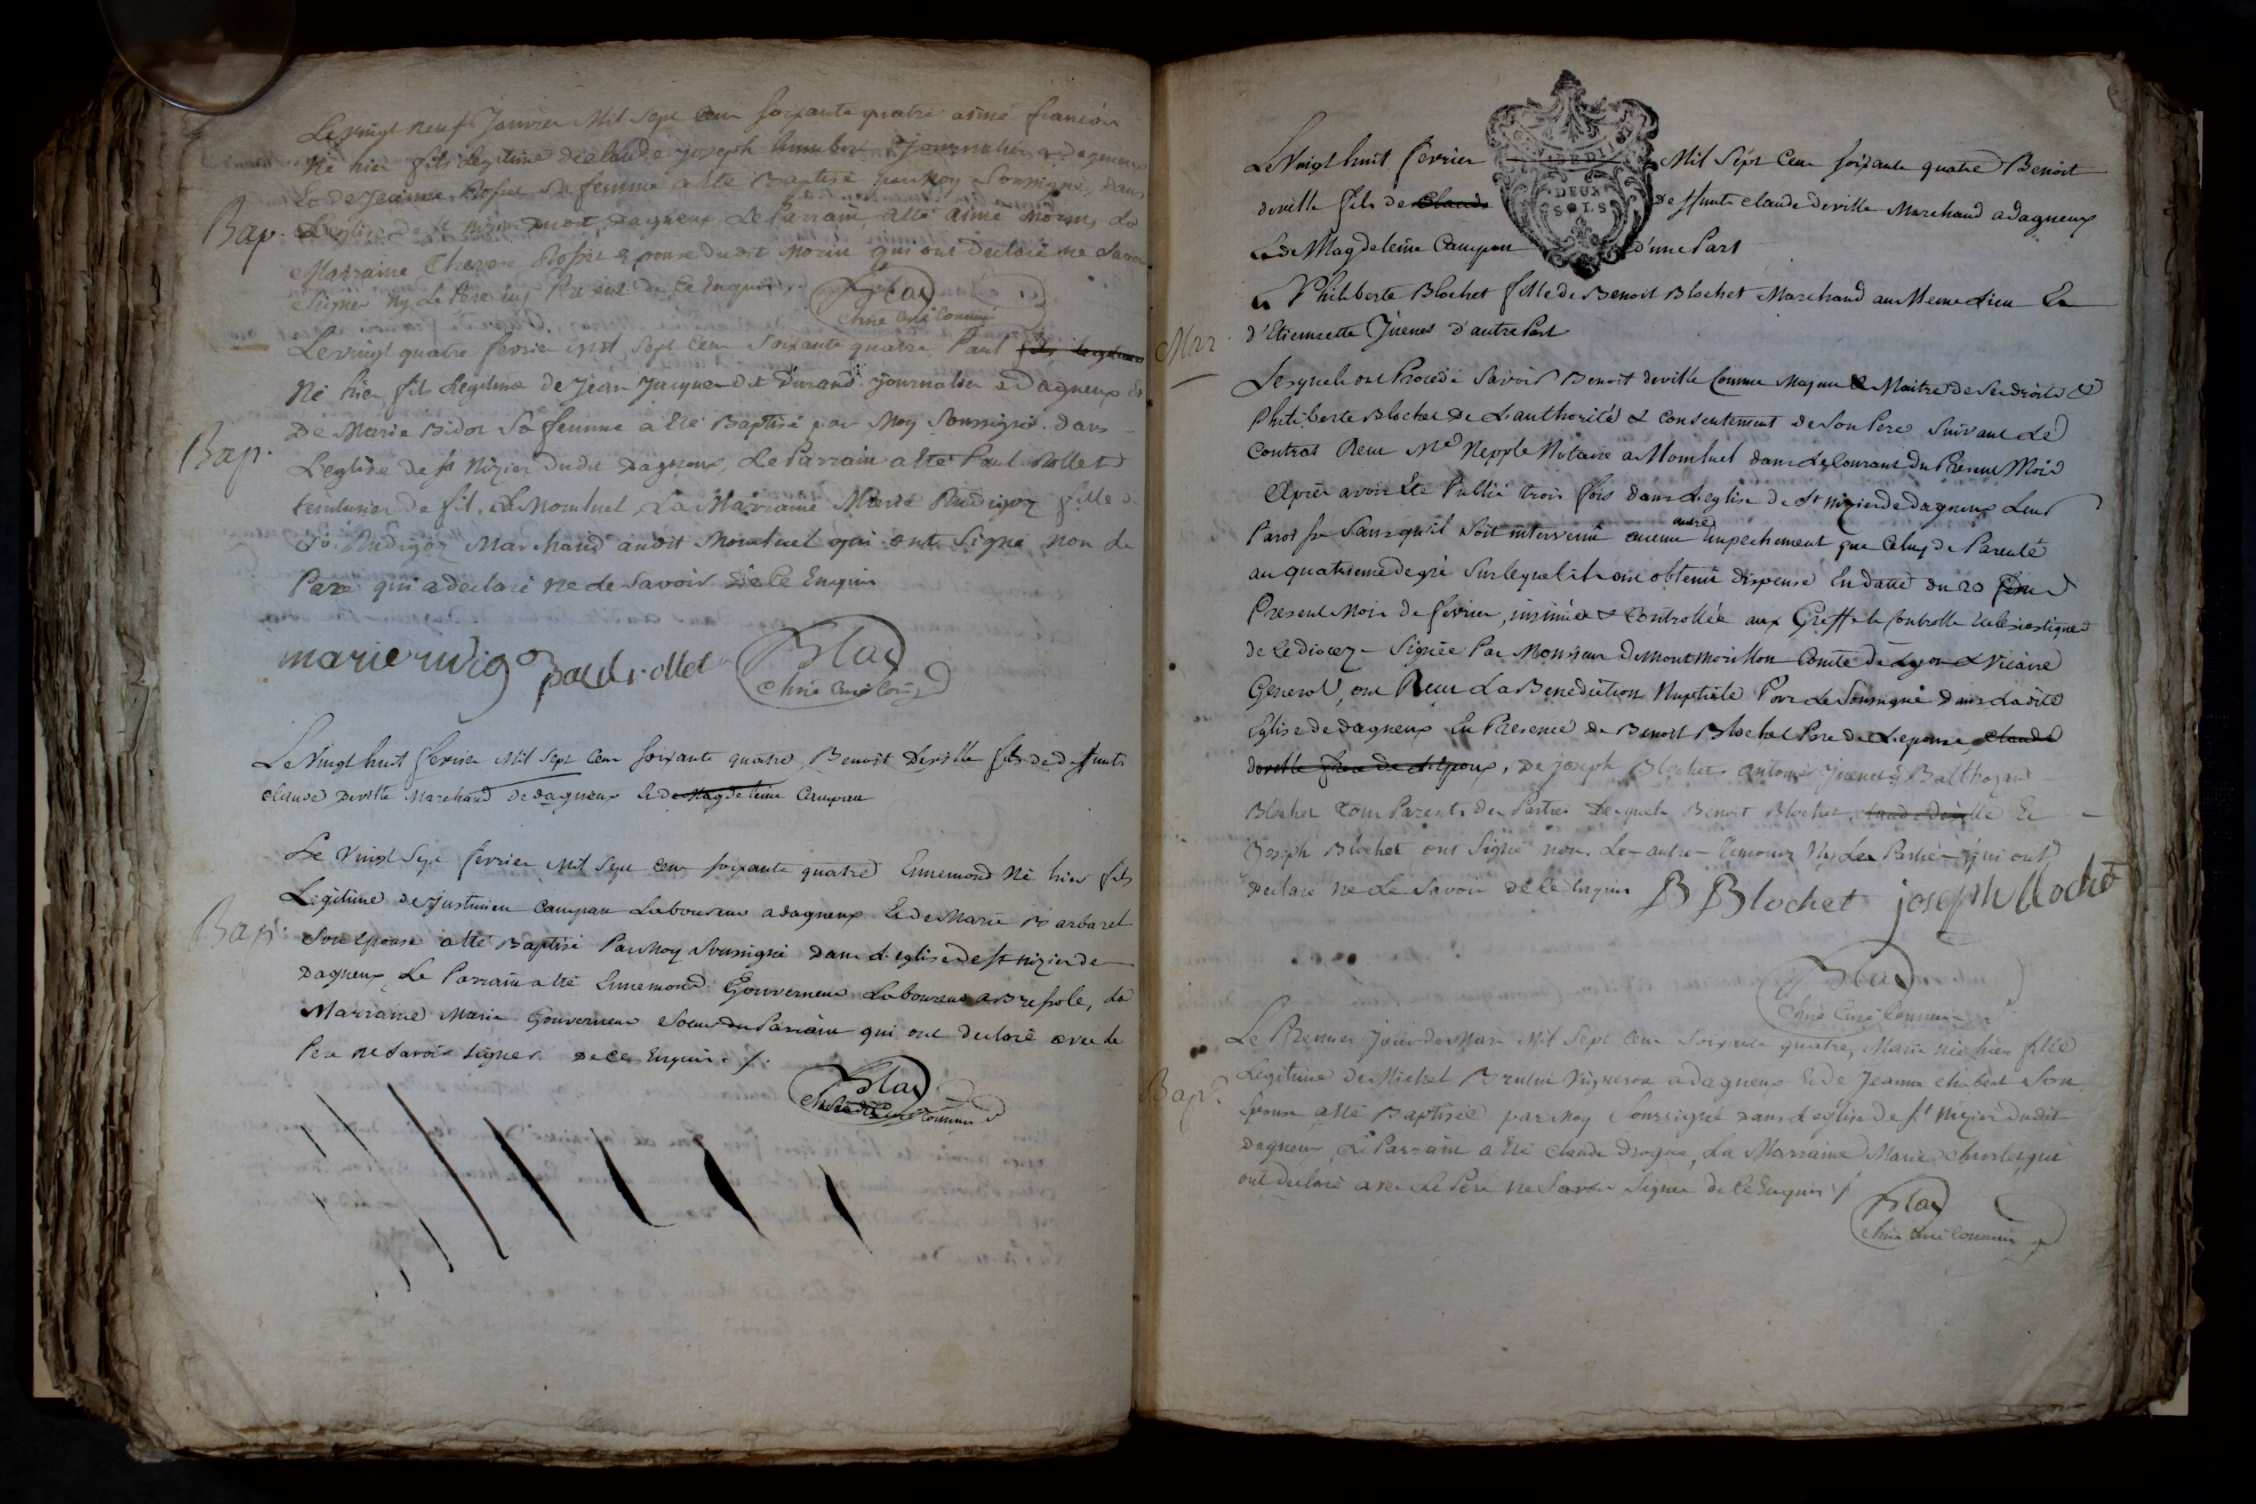 Le vingt neuf Janvier Mil Sept Cens soixante quatre aimé francois
Né hier fils Legitime de claude joseph humbert Journalier a dagneux
Et de Jeanne Rosset sa femme a Eté Baptisé par Moy Soussigné, dans
Bap. L'eglise de st nizier dudit Dagneux, Le Parrain a Eté aimé Morin, La
Marraine Rosset Epouse dudit Morin qui ont Declaré ne Savoir
Signer Ny Le Pere De Ce Enquis
Blad
Chne Curé Commis
Le vingt quatre fevrier mil Sept Cens Soixante quatre Paul fils Legitime
Né hier fils Legitime de Jean Jacquand dit Durand journalier a Dagneux Et
De Marie Bidot Sa femme a Eté Baptisé par Moy Soussigné dans
Bap. L'eglise de st Nizier dudit Dagneux, Le Parrain a Eté Paul Rollet
teinturier de fil, a Montluel, La Marraine Marie Rudigoz fille de
Sr. Rudigoz Marchand audit Montluel qui ont Signé non le
Pere qui a declaré ne le Savoir De Ce Enquis
marie rudigo paul rollet Blad
Chne Curé Com.
Le vingt huit fevrier Mil Sept Cens Soixante quatre, Benoit Deville fils de deffunts
claude Deville Marchand de dagneux et de Magdeleine Campan
Le Vingt Sept fevrier Mil Sept Cens soixante quatre Ennemond Né hier fils
Legitime de justinien Campan Laboureur a dagneux Et de Marie Barbaret
Bap. Son Epouse a Eté Baptisé Par Moy Soussigné dans L'eglise de st nizier de
Dagneux, Le Parrain a Eté Ennemond Gouverneur Laboureur a Bressole, La
Marraine Marie Gouverneur Soeur du Parrain qui ont declaré avec le
Pere ne Savoir Signer De Ce Enquis ./.
Blad
Curé Commis
DEUX
SOLS
Le Vingt huit fevrier Mil Sept Cens soixante quatre Benoit
deville fils de Claude deffunts claude Deville Marchand a dagneux
Et de Magdeleine Campan d'une Part
Et Philiberte Blochet fille de Benoit Blochet Marchand au Meme Lieu Et
Mar. d'Etiennette Juenet d'autre Part
Lesquels ont Procedé Savoir Benoit deville Comme Majeur & Maitre de Ses droits &
Philiberte Blochet De L'authorité & consentement de Son Pere Suivant Le
Contrat Recu Me Nepple Notaire a Montluel dans Le Courant du Présent Mois
Après avoir Eté Publié trois fois dans L'eglise de St nizier de dagneux Leur
Paroisse Sans qu'il Soit intervenu aucun autre Empechement que Celuy de Parenté
au quatrieme degré Sur lequel ils ont obtenu dispense En datte du 20
Present Mois de fevrier, insinuée & Controllée aux Greffe & Controlle Eclesiastique
de Ce diocez Signée Par Monsieur Demontmorillon Comte de Lyon & Vicaire
General, ont Recu La Benediction Nuptiale Par Le Soussigné dans Ladite
Eglise de dagneux En Presence de Benoit Blochet Pere de L'epouse, Claude
deville frere de L'epoux, De joseph Blochet, antoine Juenet, Balthazard
Blochet tous Parents des Parties Desquels Benoit Blochet, claude deville Et
Joseph Blochet ont Signé non Les autres Temoins Ny Les Parties qui ont
Declaré ne Le Savoir de Ce Enquis B Blochet joseph blochet
Blad
Chne Curé Commis
Le Premier Jour de Mars Mil Sept Cens Soixante quatre, Marie née hier fille
Legitime de Michel Brulat Vigneron a dagneux Et de Jeanne chabert Son
Bap. Epouse a Eté Baptisée par Moy Soussigné dans L'eglise de st Nizier dudit
Dagneux, Le Parrain a Eté claude Drogue, La Marraine Marie qui
ont declaré avec Le Pere ne Savoir Signer de Ce Enquis /
Blad
Chne Curé Commis